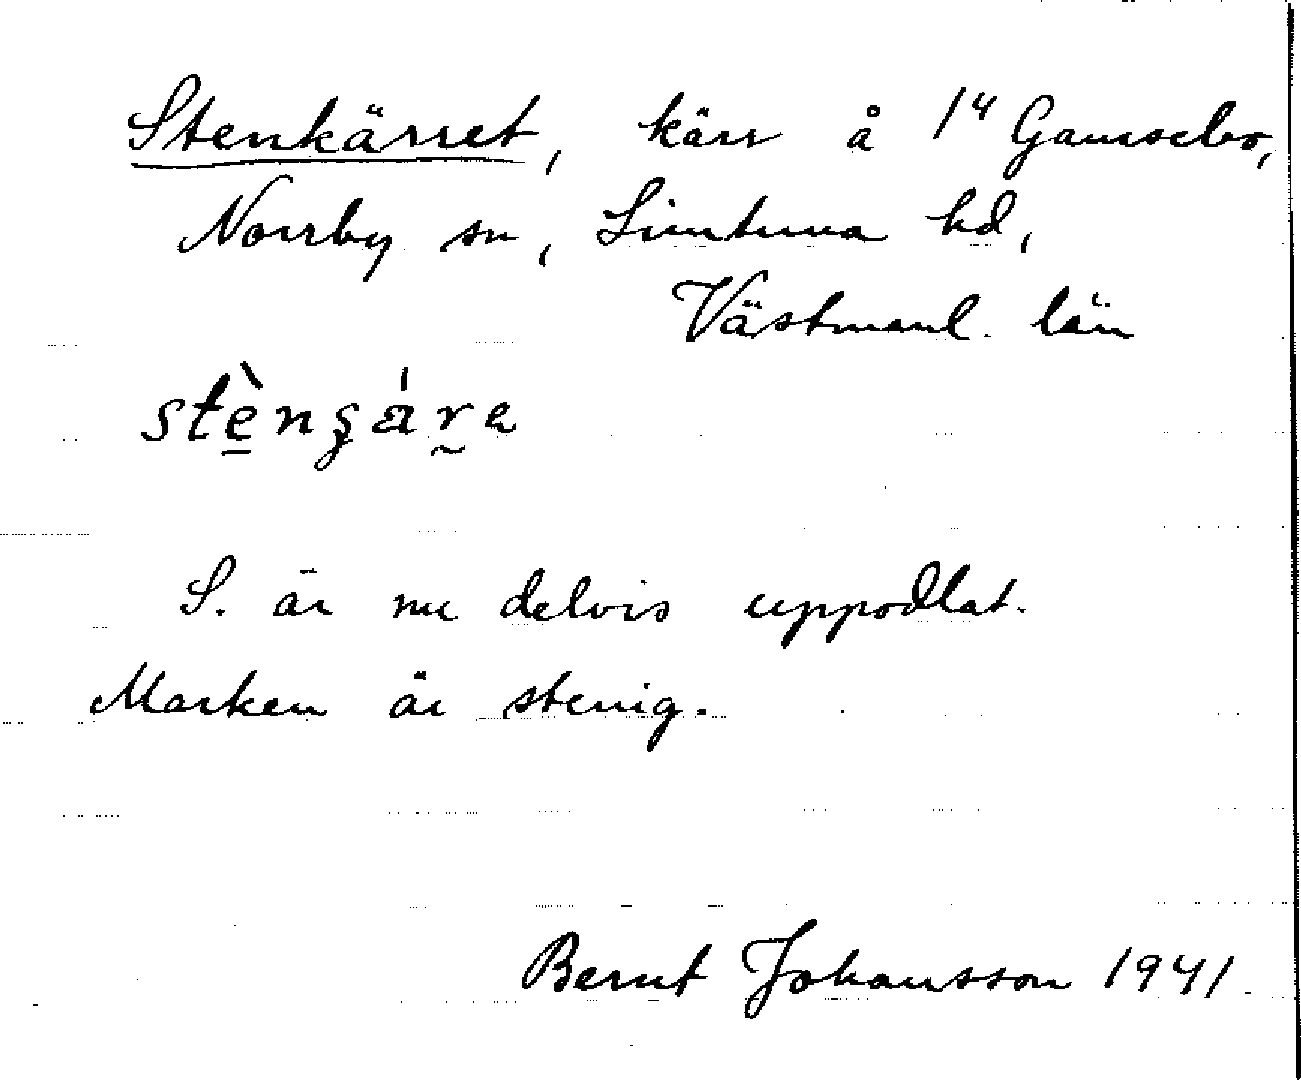 Stenkärret, kärr å 1⁴ Gamsebo,
Norrby sn, Simtuna hd,
Västmanl. län
S. är nu delvis uppodlat.
Marken är stenig.
Bernt Johansson 1941